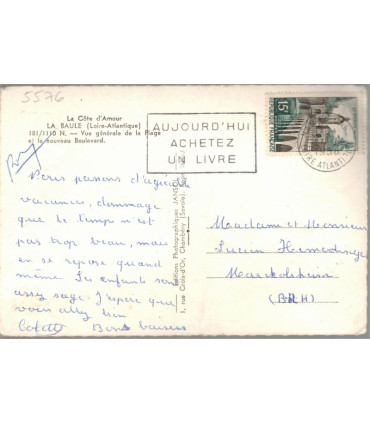 5576
La Côte d'Amour
LA BAULE (Loire-Atlantique)
181/1110 N. — Vue générale de la Plage
et le nouveau Boulevard.
AUJOURD'HUI
ACHETEZ
UN LIVRE
15F
REPUBLIQUE FRANÇAISE
LOIRE ATLANTIQUE
Nous passons d'agréable
vacances, dommage
que le temps n'est
pas trop beau, mais
en se repose quand
même. Les enfants son
assez sage. J'espere que
vous allez bien
Colette Bons baisers
Editions Photographiques
1, rue Croix-d'Or, Chambéry (Savoie)
Madame et Monsieur
Lucien
Marckolsheim
(BRH)